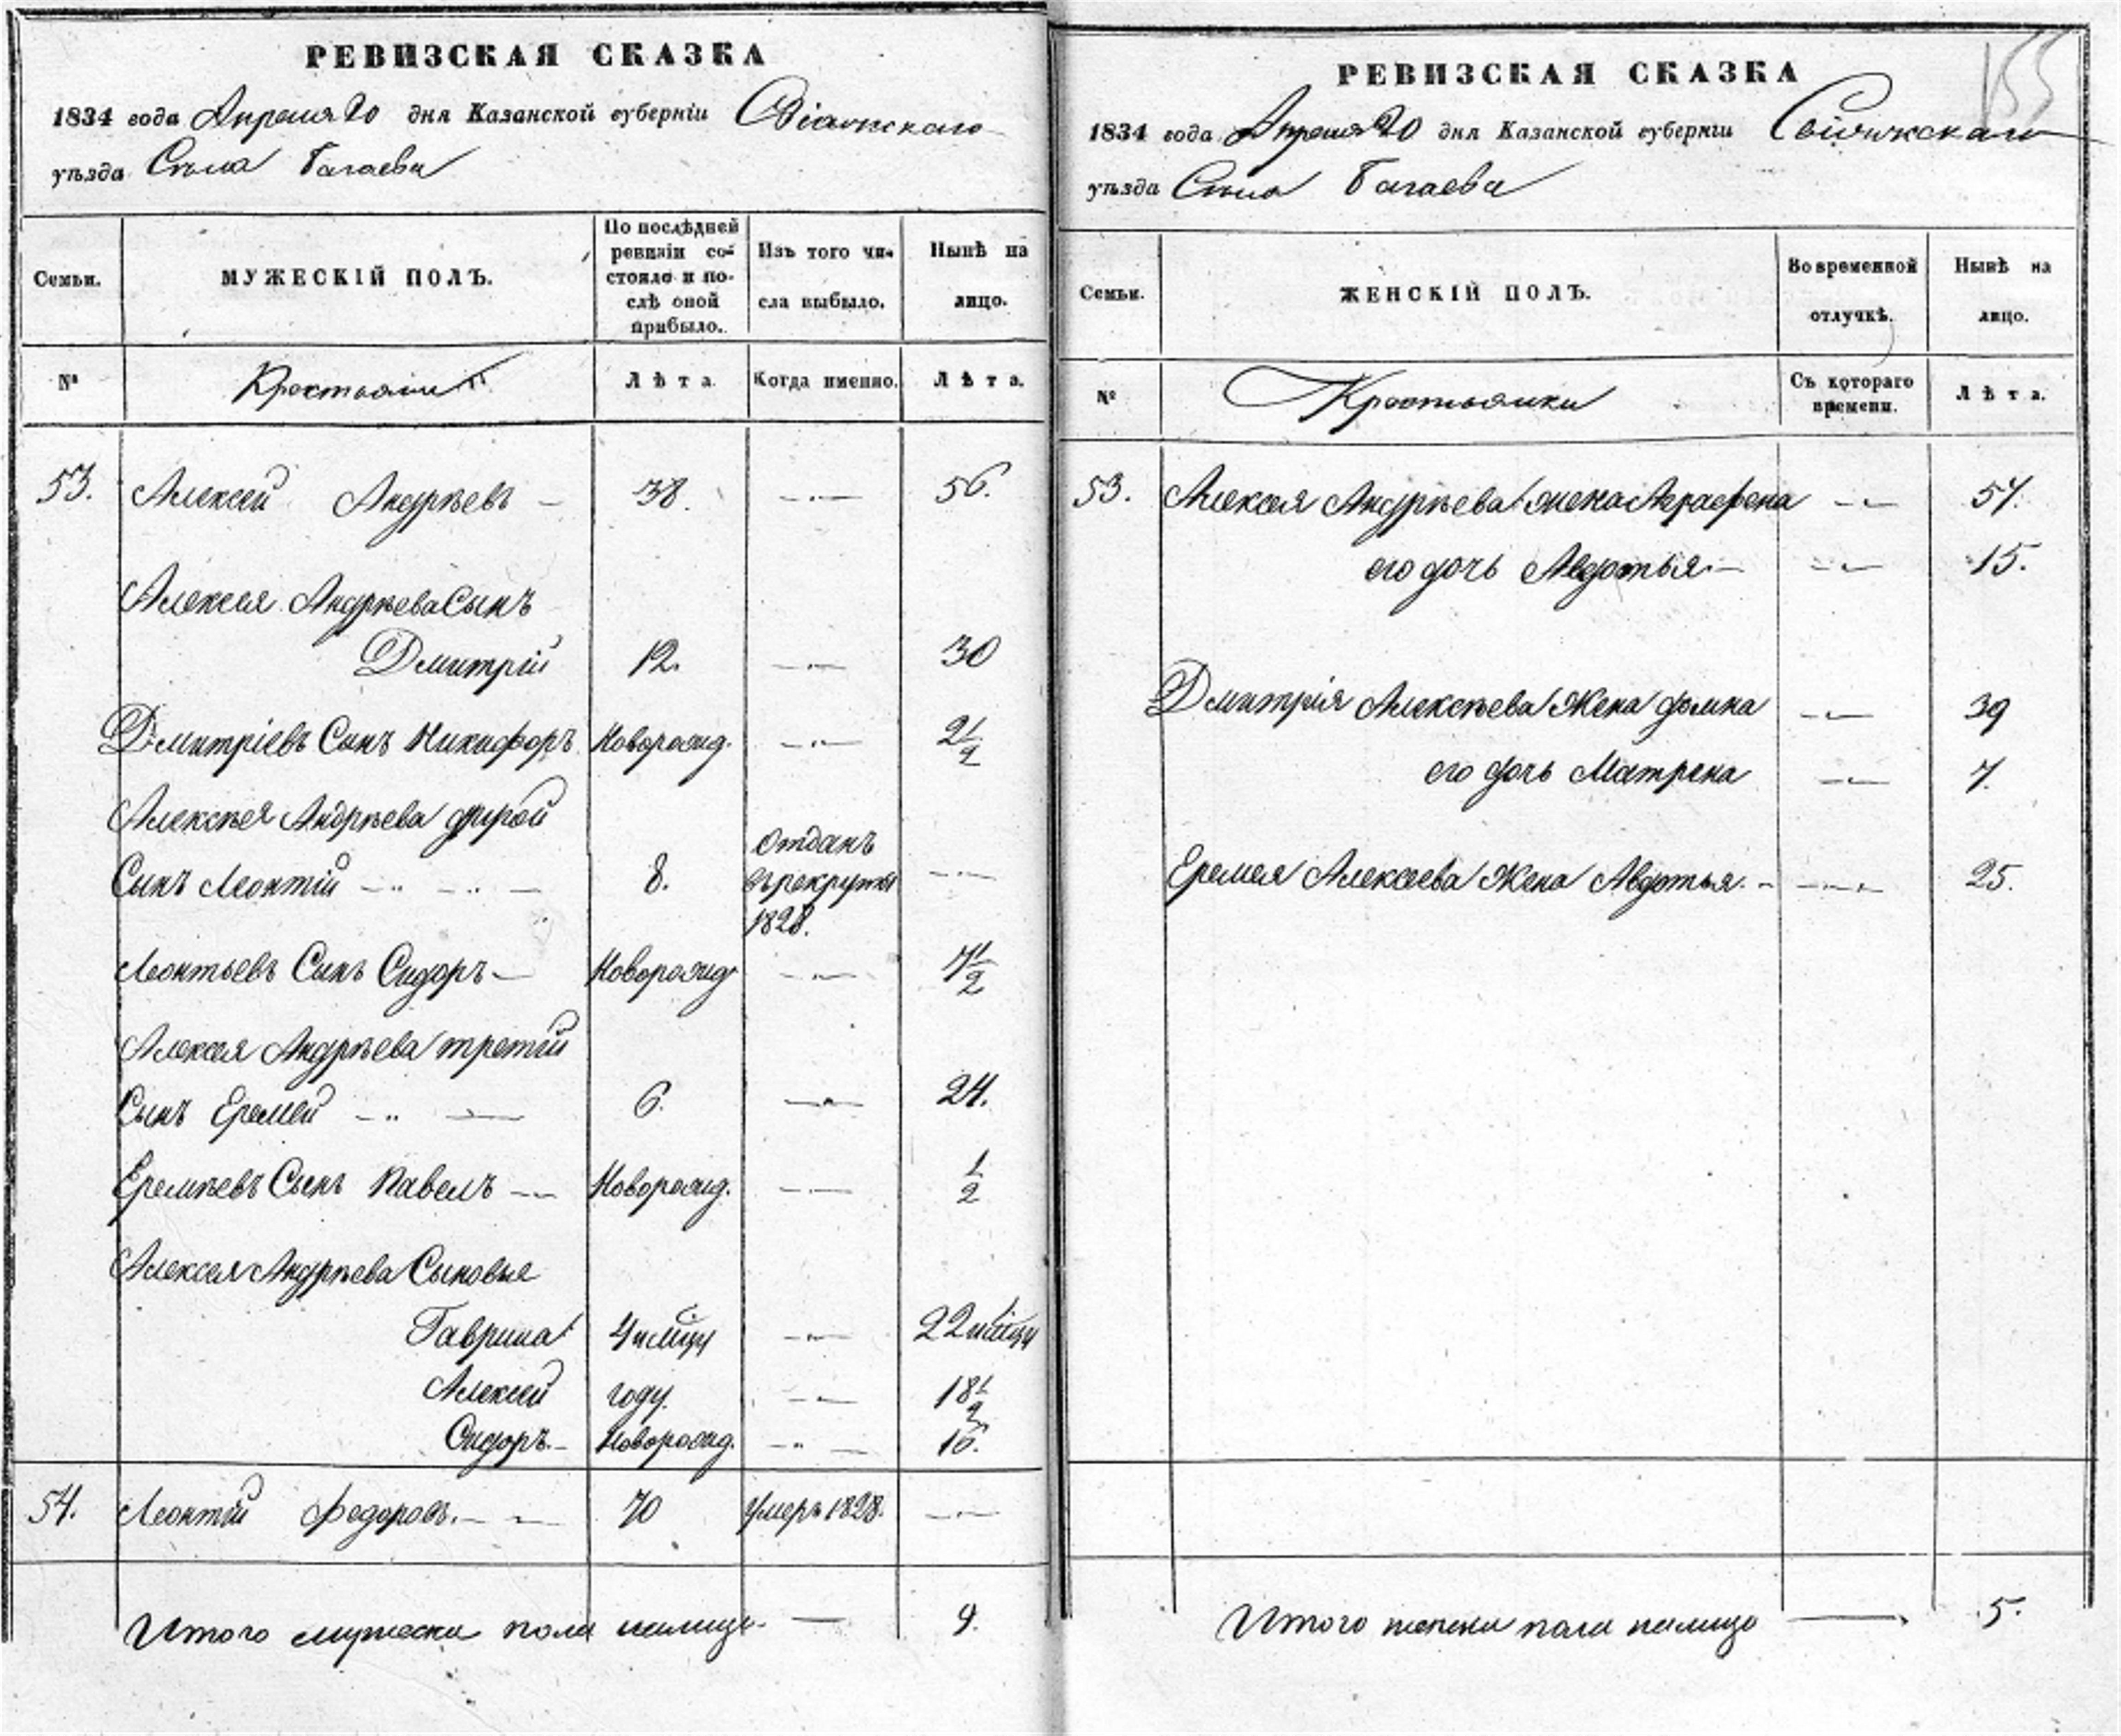 РЕВИЗСКАЯ СКАЗКА
1834 года Апреля 20 дня Казанской губерніи Свіяжскаго
уѣзда Села Багаева
Семьи.
МУЖЕСКІЙ ПОЛЪ.
По послѣдней ревизіи состояло и послѣ оной прибыло.
Изъ того числа выбыло.
Нынѣ на лицо.
№
Крестьяни
Лѣта.
Когда именно.
Лѣта.
53. Алексей Андрѣевъ 38. 56.
Алексея Андрѣева Сынъ
Дмитрій 12. 30
Дмитріевъ Сынъ Никифоръ Новорожд. 2 1/2
Алексѣя Андрѣева другой
Сынъ Леонтій 8. отданъ въ рекруты 1828.
Леонтьевъ Сынъ Сидоръ Новорожд 7 1/2
Алексея Андрѣева третій
Сынъ Еремей 6. 24.
Еремѣевъ Сынъ Павелъ Новорожд. 1/2
Алексея Андрѣева Сыновья
Гаврила 4 мѣсцы 22 мѣсцы
Алексей году. 18 1/2
Сидоръ Новорожд. 16.
54. Леонтій Федоровъ. 70 умеръ 1828.
Итого мужеска пола налицо 9.
155
РЕВИЗСКАЯ СКАЗКА
1834 года Апреля 20 дня Казанской губерніи Свіяжскаго
уѣзда Села Багаева
Семьи.
ЖЕНСКІЙ ПОЛЪ.
Во временной отлучкѣ.
Нынѣ на лицо.
№
Крестьянки
Съ котораго времени.
Лѣта.
53. Алексея Андрѣева жена Аграфена 57.
его дочь Авдотья 15.
Дмитрія Алексѣева Жена 39
его дочь Матрена 7.
Еремея Алексеева Жена Авдотья 25.
Итого женска пола налицо 5.